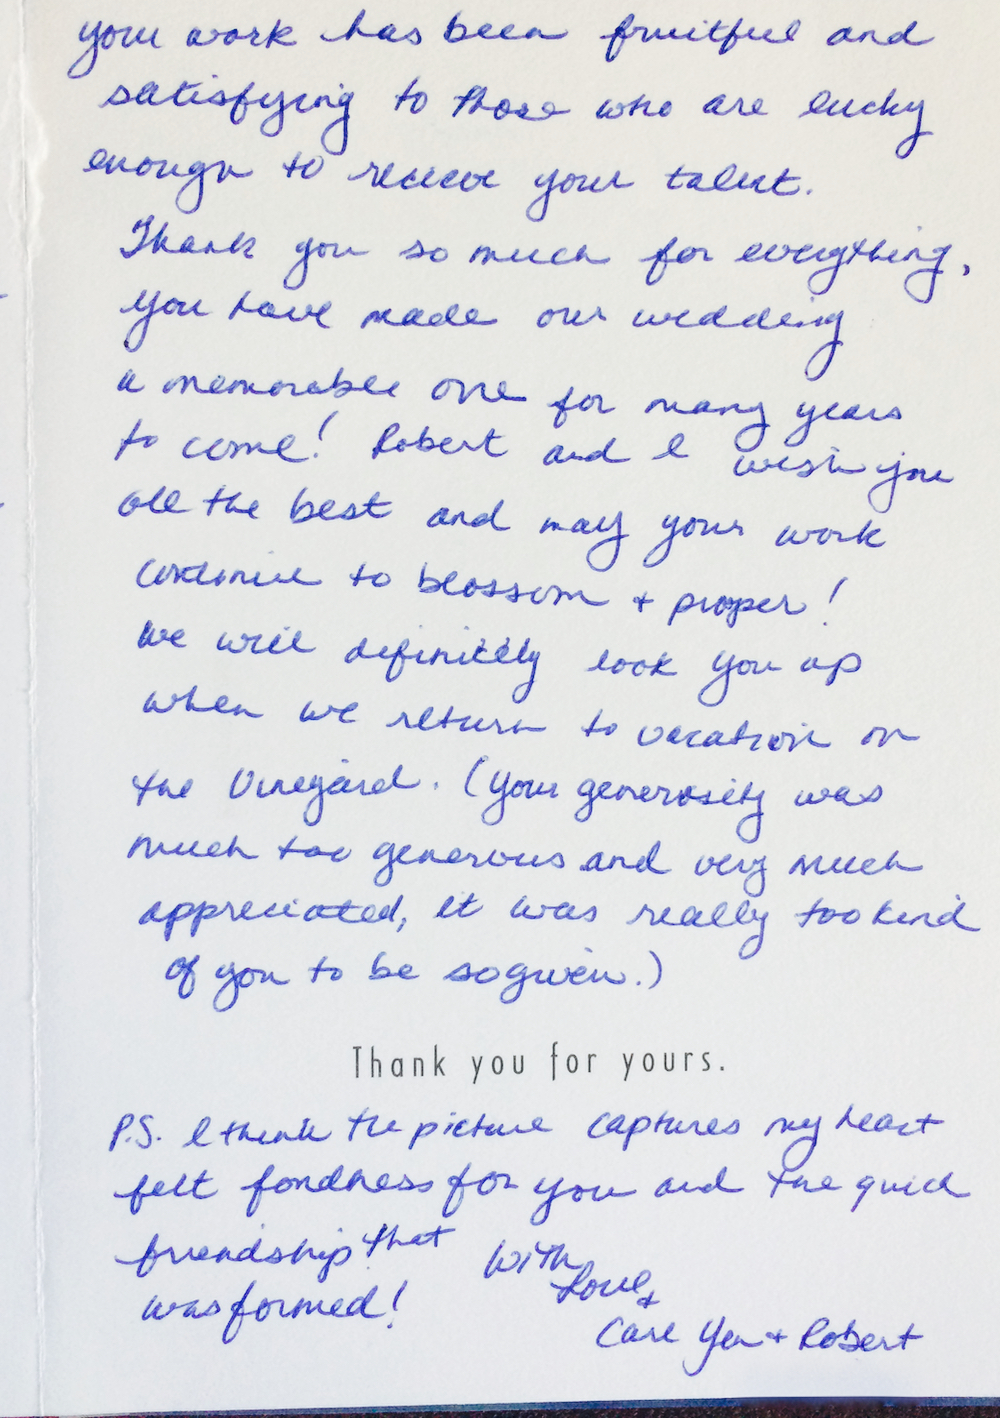 your work has been fruitful and
satisfying to those who are lucky
enough to receive your talent.
Thank you so much for everything,
you have made our wedding
a memorable one for many years
to come! Robert and I wish you
all the best and may your work
continue to blossom + proper!
We will definitely look you up
when we return to vacation on
the Vineyard. (Your generosity was
much too generous and very much
appreciated, it was really too kind
of you to be so given.)
Thank you for yours.
P.S. I think the picture captures my heart
felt fondness for you and the quick
friendship that
was formed!
With
Love +
Care Yen + Robert